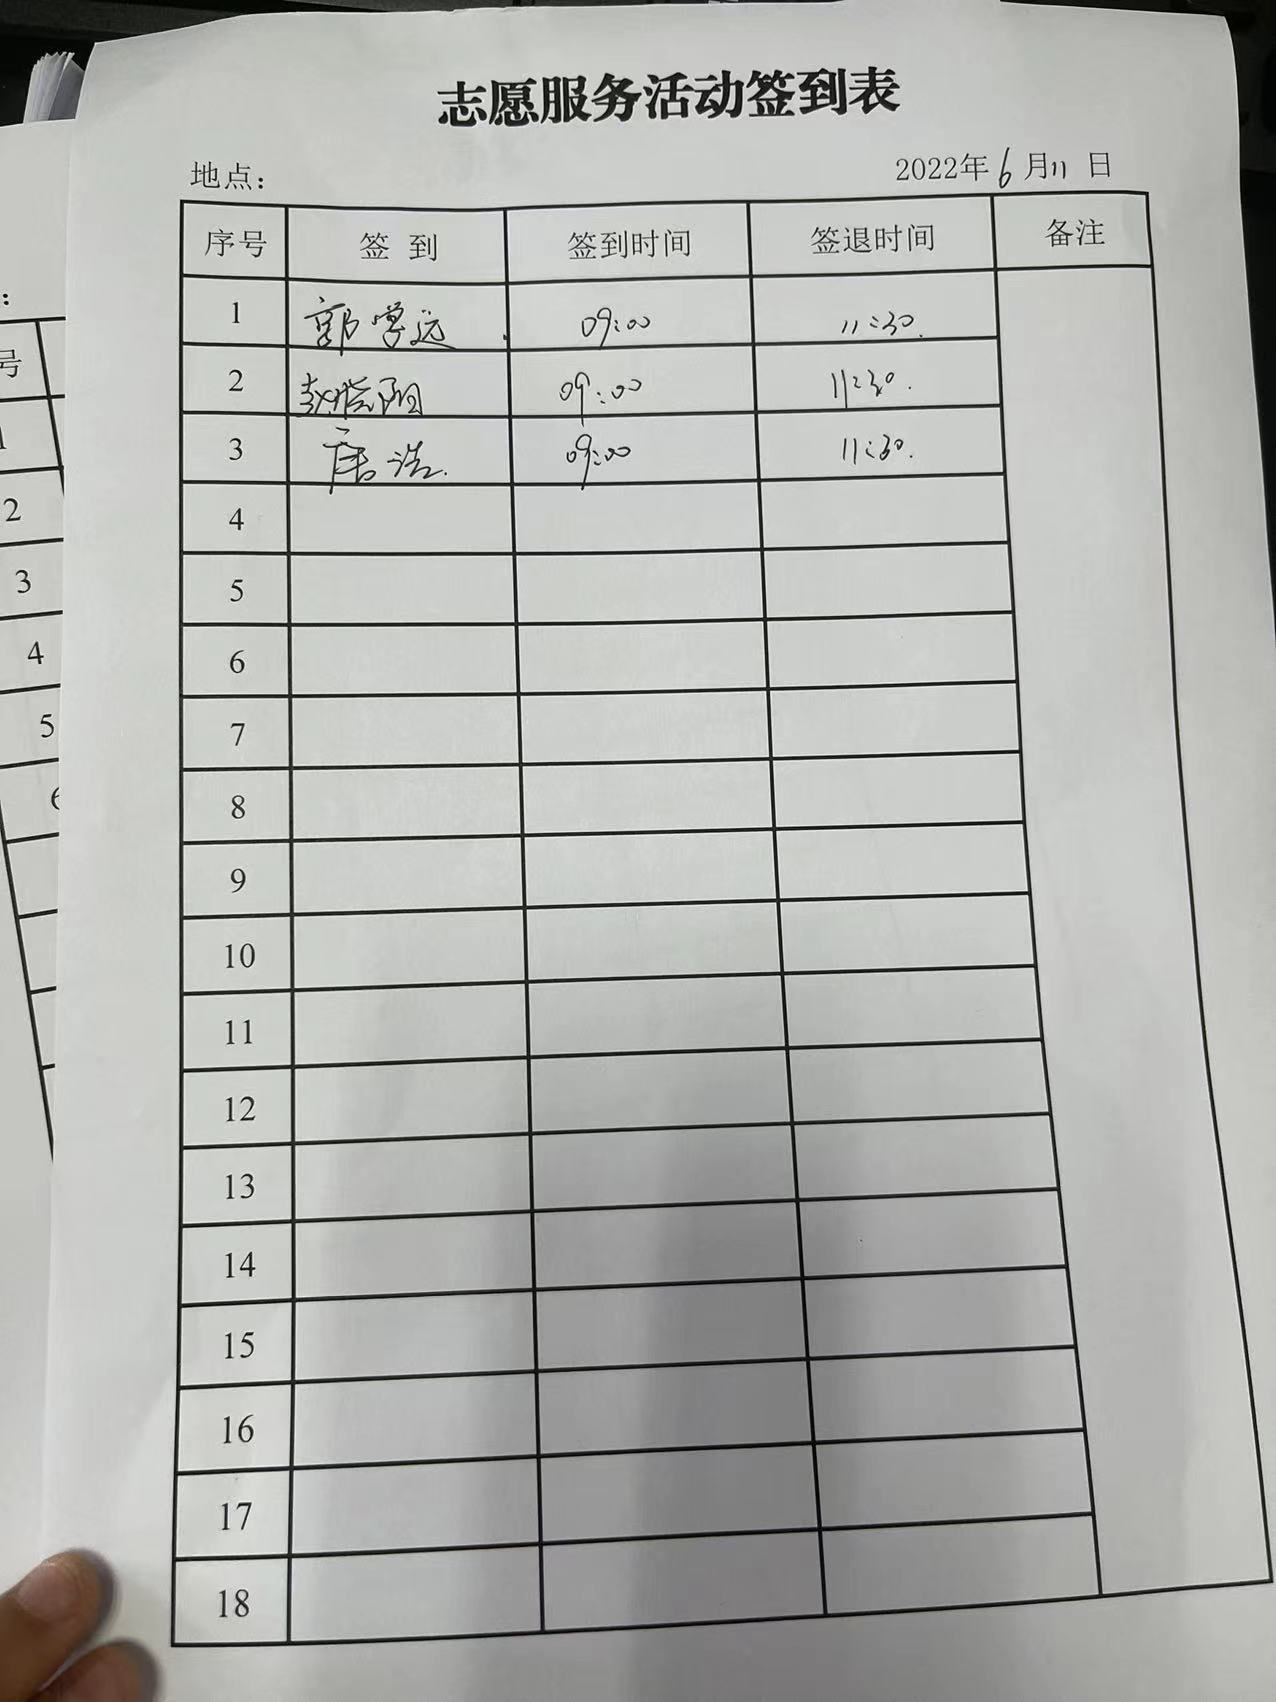 志愿服务活动签到表
地点： 2022年6月11日
序号 签到 签到时间 签退时间 备注
1 郭学远 09:00 11:30.
2 赵晓阳 09:00 11:30.
3 唐浩. 09:00 11:30.
4
5
6
7
8
9
10
11
12
13
14
15
16
17
18
：
号
1
2
3
4
5
6